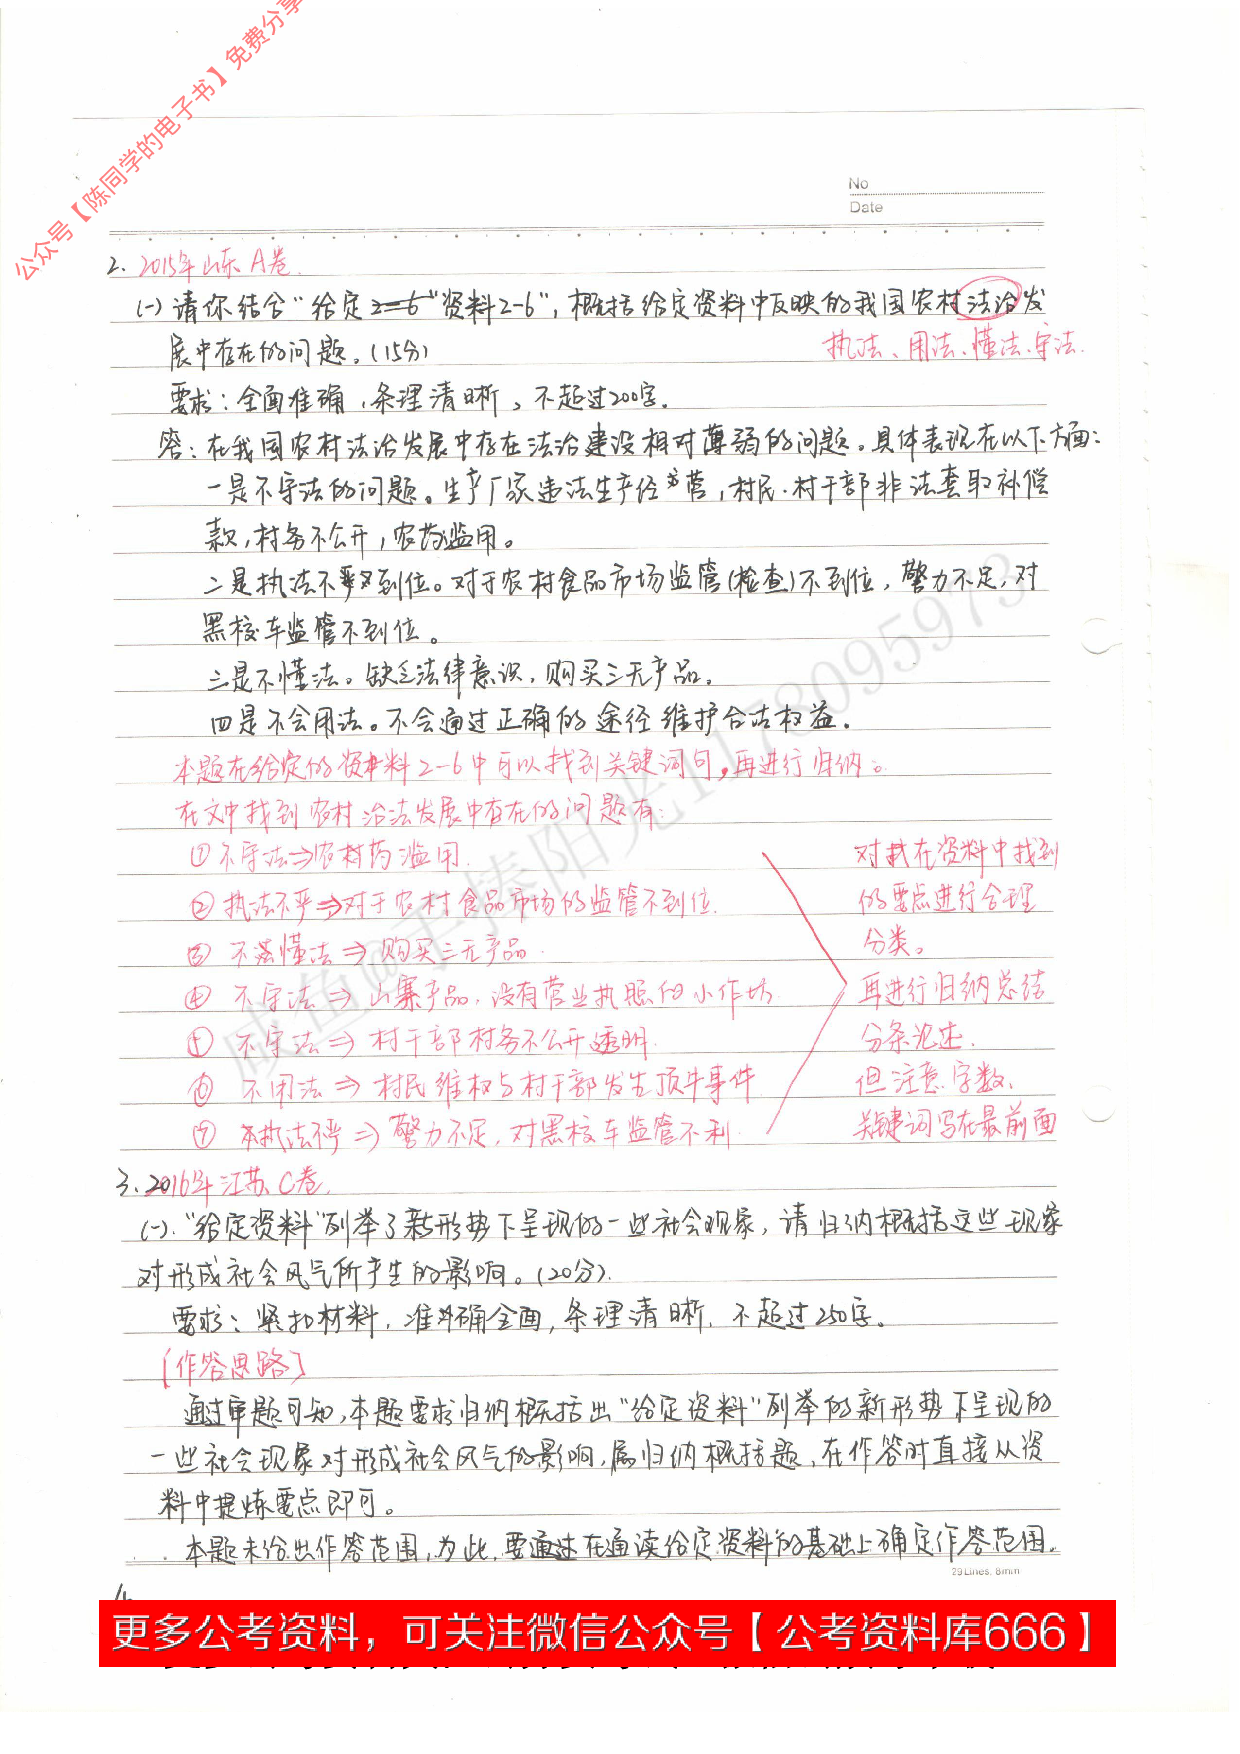 公众号【陈同学的电子书】免费分享
No
Date
2. 2015年山东A卷.
(一)请你结合"给定2-6"资料2-6",概括给定资料中反映的我国农村法治发
展中存在的问题。(15分)
执法、用法、懂法、守法.
要求:全面准确,条理清晰,不超过200字。
答:在我国农村法治发展中存在法治建设相对薄弱的问题。具体表现在以下方面:
一是不守法的问题。生产厂家违法生产经营,村民、村干部非法套取补偿
款,村务不公开,农药滥用。
二是执法不到位。对于农村食品市场监管(检查)不到位,警力不足,对
黑校车监管不到位。
三是不懂法。缺乏法律意识,购买三无产品。
四是不会用法。不会通过正确的途径维护合法权益。
本题在给定的资料2-6中可以找到关键词句,再进行归纳。
在文中找到农村治法发展中存在的问题有:
①不守法⇒农村药滥用.
②执法不严⇒对于农村食品市场的监管不到位.
③不懂法⇒购买三无产品.
④不守法⇒山寨产品,没有营业执照的小作坊.
⑤不守法⇒村干部村务不公开透明.
⑥不用法⇒村民维权与村干部发生顶牛事件
⑦执法不严⇒警力不足,对黑校车监管不利
对我在资料中找到
的要点进行合理
分类。
再进行归纳总结
分条论述.
但注意字数,
关键词写在最前面
3. 2016年江苏C卷.
(一)."给定资料"列举了新形势下呈现的一些社会现象,请归纳概括这些现象
对形成社会风气所产生的影响。(20分).
要求:紧扣材料,准确全面,条理清晰,不超过250字。
[作答思路]
通过审题可知,本题要求归纳概括出"给定资料"列举的新形势下呈现的
一些社会现象对形成社会风气的影响,属归纳概括题,在作答时直接从资
料中提炼要点即可。
本题未给出作答范围,为此,要通过在通读给定资料的基础上确定作答范围。
29Lines, 8mm
咸鱼@手捧阳光1178095973
更多公考资料,可关注微信公众号【公考资料库666】